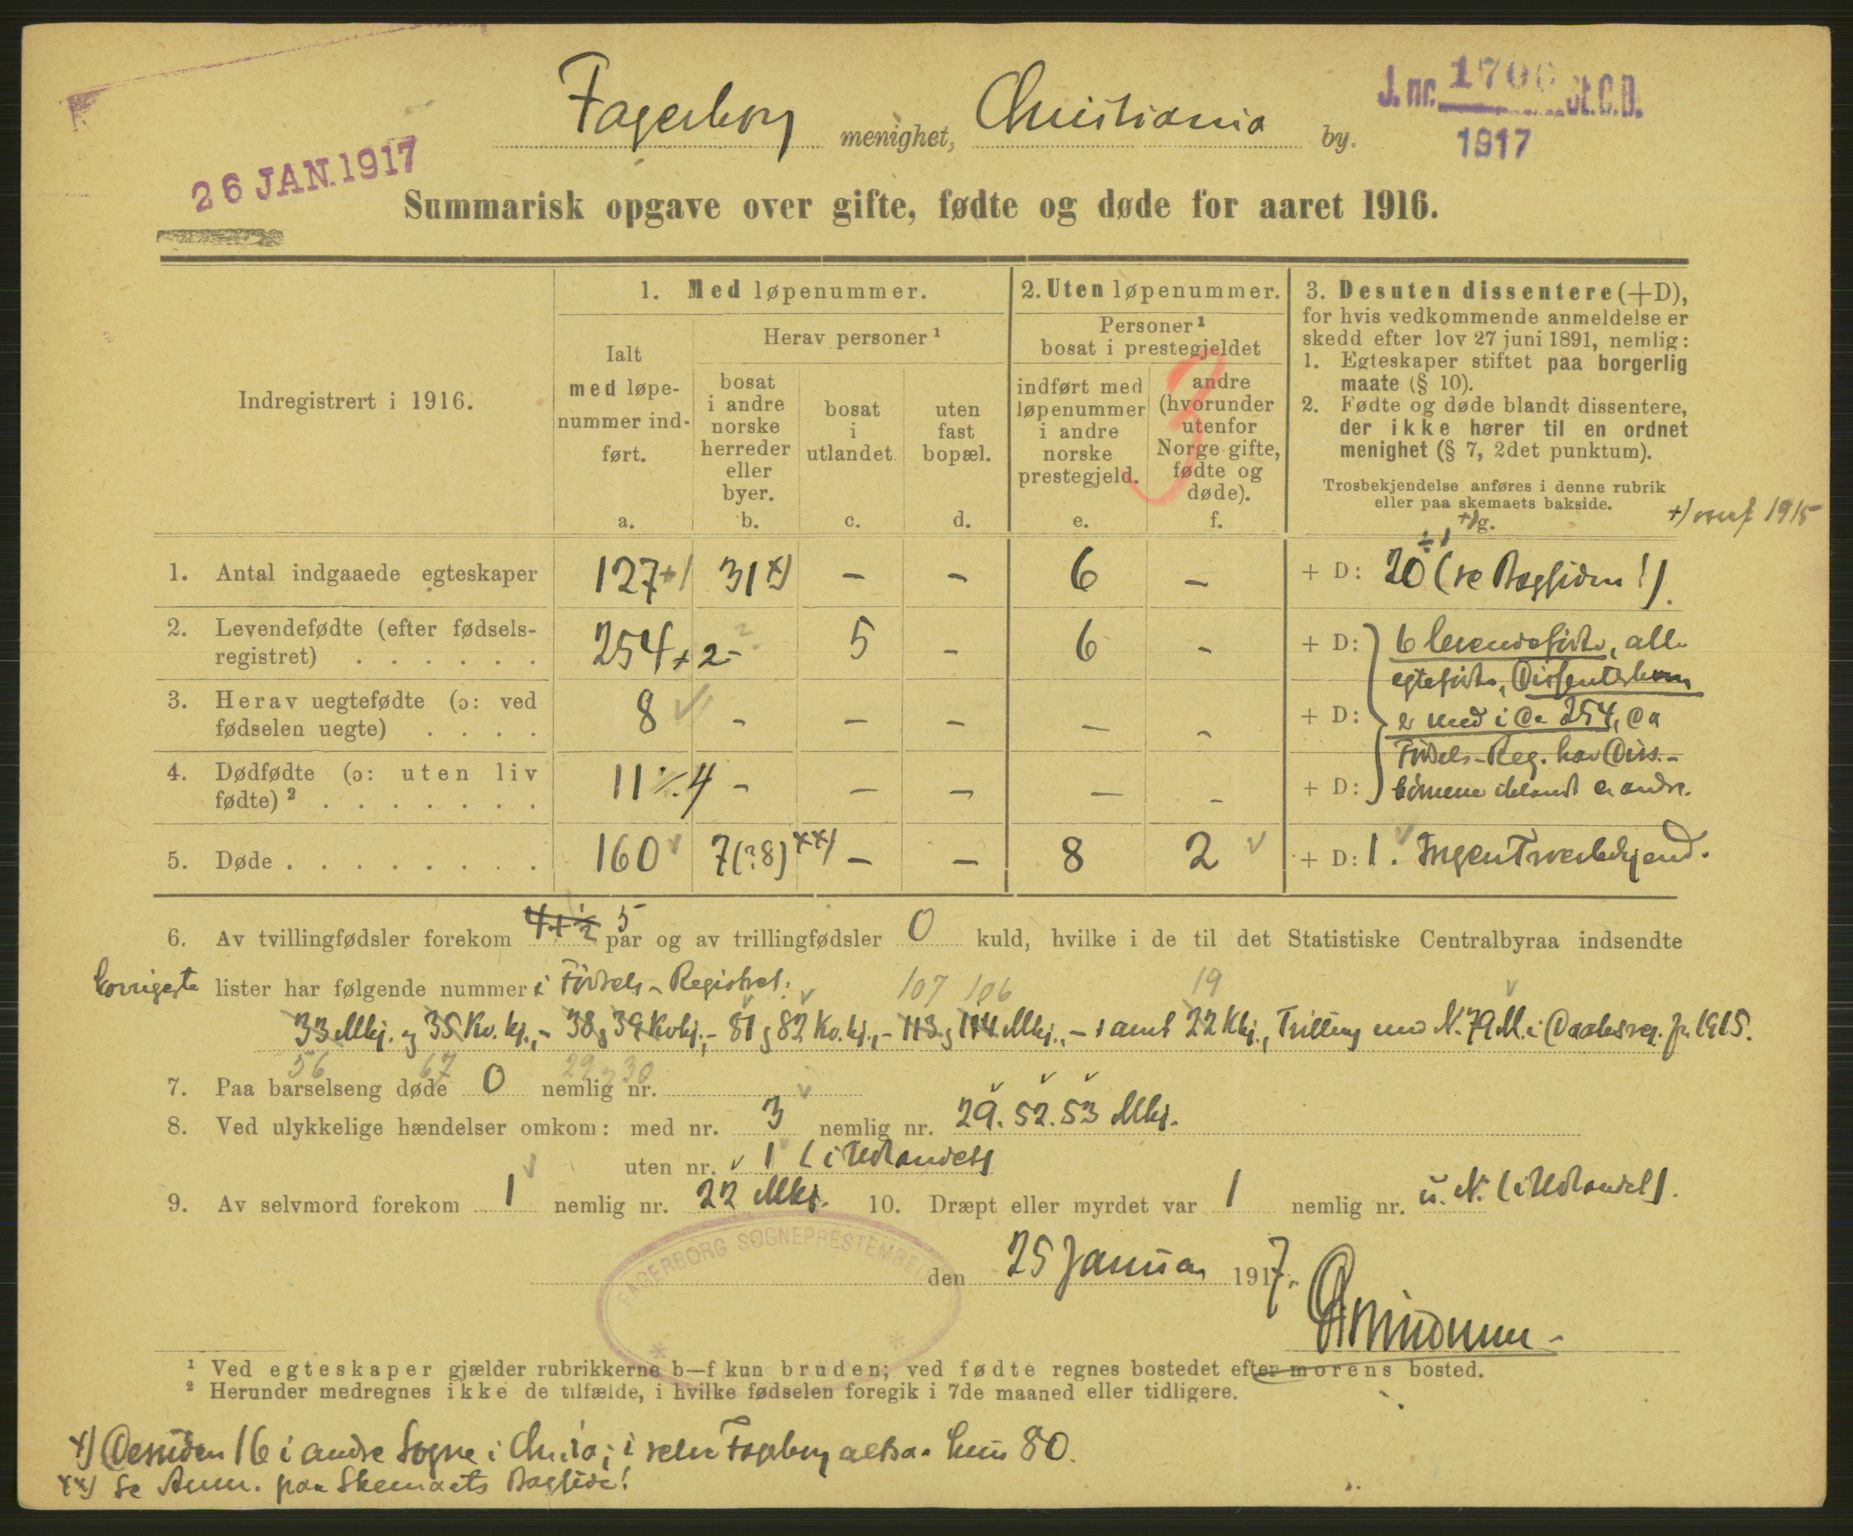 Fagerborg menighet, Christiania by.
J. nr. 170 St. C. B.
1917
26 JAN. 1917
Summarisk opgave over gifte, fødte og døde for aaret 1916.
Indregistrert i 1916.
1. Med løpenummer.
Ialt
med løpe-
nummer ind-
ført.
a.
Herav personer ¹
bosat
i andre
norske
herreder
eller
byer.
b.
bosat
i
utlandet
c.
uten
fast
bopæl.
d.
2. Uten løpenummer.
Personer ¹
bosat i prestegjeldet
indført med
løpenummer
i andre
norske
prestegjeld.
e.
andre
(hvorunder
utenfor
Norge gifte,
fødte og
døde).
f.
3
3. Desuten dissentere (+D),
for hvis vedkommende anmeldelse er
skedd efter lov 27 juni 1891, nemlig:
1. Egteskaper stiftet paa borgerlig
maate (§ 10).
2. Fødte og døde blandt dissentere,
der ikke hører til en ordnet
menighet (§ 7, 2det punktum).
Trosbekjendelse anføres i denne rubrik
eller paa skemaets bakside.
g.
1915
1. Antal indgaaede egteskaper 127+1 31 x) – – 6 – + D: 20 (se Bagsiden!).
÷ 1
2. Levendefødte (efter fødsels-
registret) . . . . . . 254 + 2 – 5 – 6 – + D: 6 levendefødte, alle
egtefødte, Dissenterbørn
3. Herav uegtefødte (ɔ: ved
fødselen uegte) . . . . 8 – – – – – + D: er med i de 254, da
Fødsels-Reg. har Diss.-
4. Dødfødte (ɔ: uten liv
fødte) ² . . . . . . . 11 ٪ 4 – – – – – + D: børnene iblandt de andre.
5. Døde . . . . . . . . 160 7(?8) xx) – – 8 2 + D: 1. Ingen Trosbekjend.
6. Av tvillingfødsler forekom 5 par og av trillingfødsler 0 kuld, hvilke i de til det Statistiske Centralbyraa indsendte
korrigerte lister har følgende nummer i Fødsels-Registret: 107 106 19
33 Mkj. og 35 Kv. kj., – 38 g 39 Kvkj., – 81 g 82 Kv. kj., – 113 g 114 Mkj., – samt 22 Kkj., Trilling med N. 79 M. i Daabsreg. for 1915.
56 67 29 30
7. Paa barselseng døde 0 nemlig nr.
8. Ved ulykkelige hændelser omkom: med nr. 3 nemlig nr. 29. 52. 53 Mkj.
uten nr. 1 (i Udlandet)
9. Av selvmord forekom 1 nemlig nr. 22 Mkj. 10. Dræpt eller myrdet var 1 nemlig nr. u. N. (i Udlandet).
FAGERBORG SOGNEPRESTEMBEDE
den 25 Januar 1917.
¹ Ved egteskaper gjælder rubrikkerne b—f kun bruden; ved fødte regnes bostedet efter morens bosted.
² Herunder medregnes ikke de tilfælde, i hvilke fødselen foregik i 7de maaned eller tidligere.
x) Desuden 16 i andre Sogne i Chr.ia; i selve Fagerborg altsaa kun 80.
xx) Se Anm. paa Skemaets Bagside!